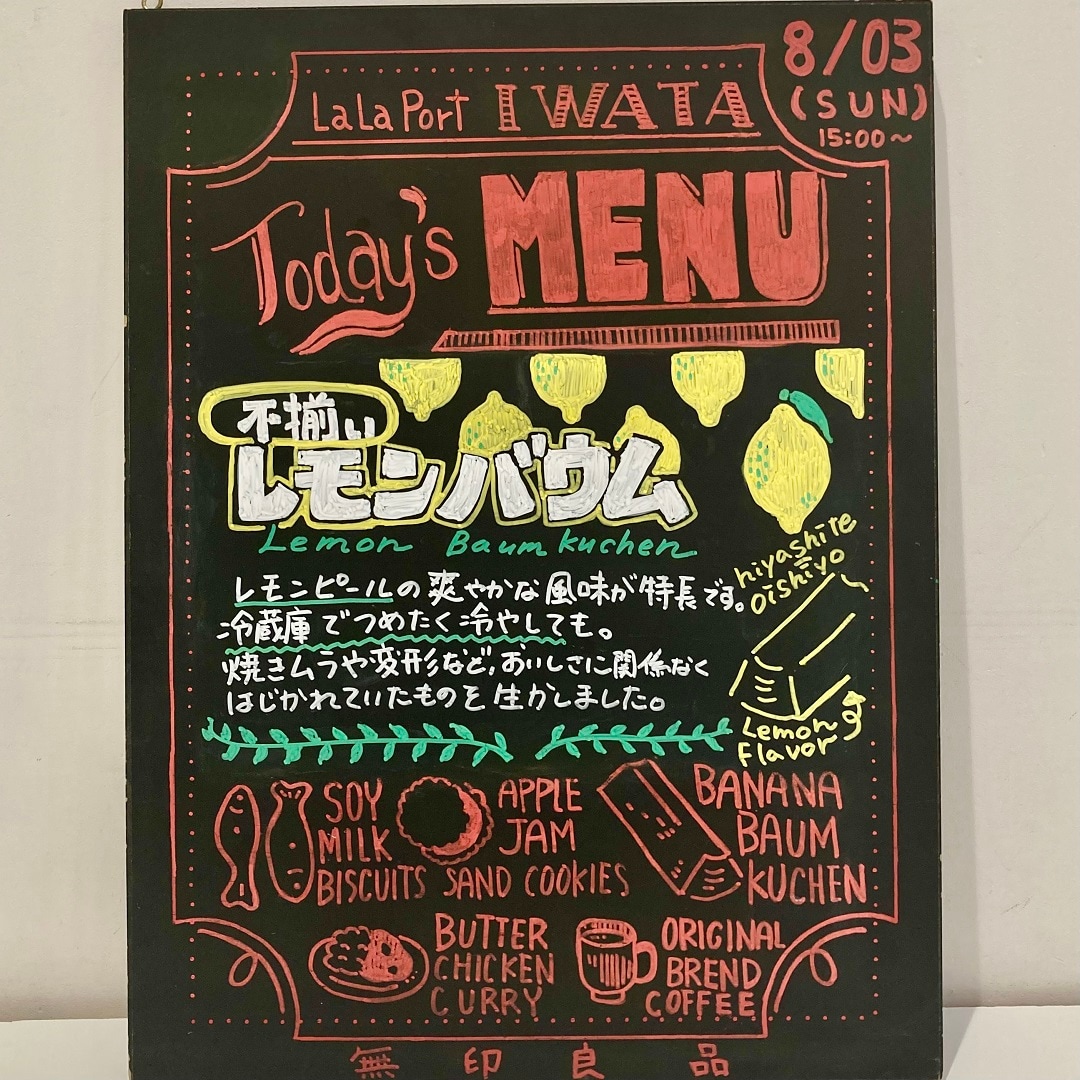 8/03
(SUN)
15:00～
LaLaPort IWATA
Today's MENU
不揃い
レモンバウム
Lemon Baumkuchen
レモンピールの爽やかな風味が特長です。
冷蔵庫でつめたく冷やしても。
焼きムラや変形など、おいしさに関係なく
はじかれていたものを生かしました。
hiyashite
oishiyo
Lemon
Flavor
SOY
MILK
BISCUITS
APPLE
JAM
SAND COOKIES
BANANA
BAUM
KUCHEN
BUTTER
CHICKEN
CURRY
ORIGINAL
BREND
COFFEE
無印良品